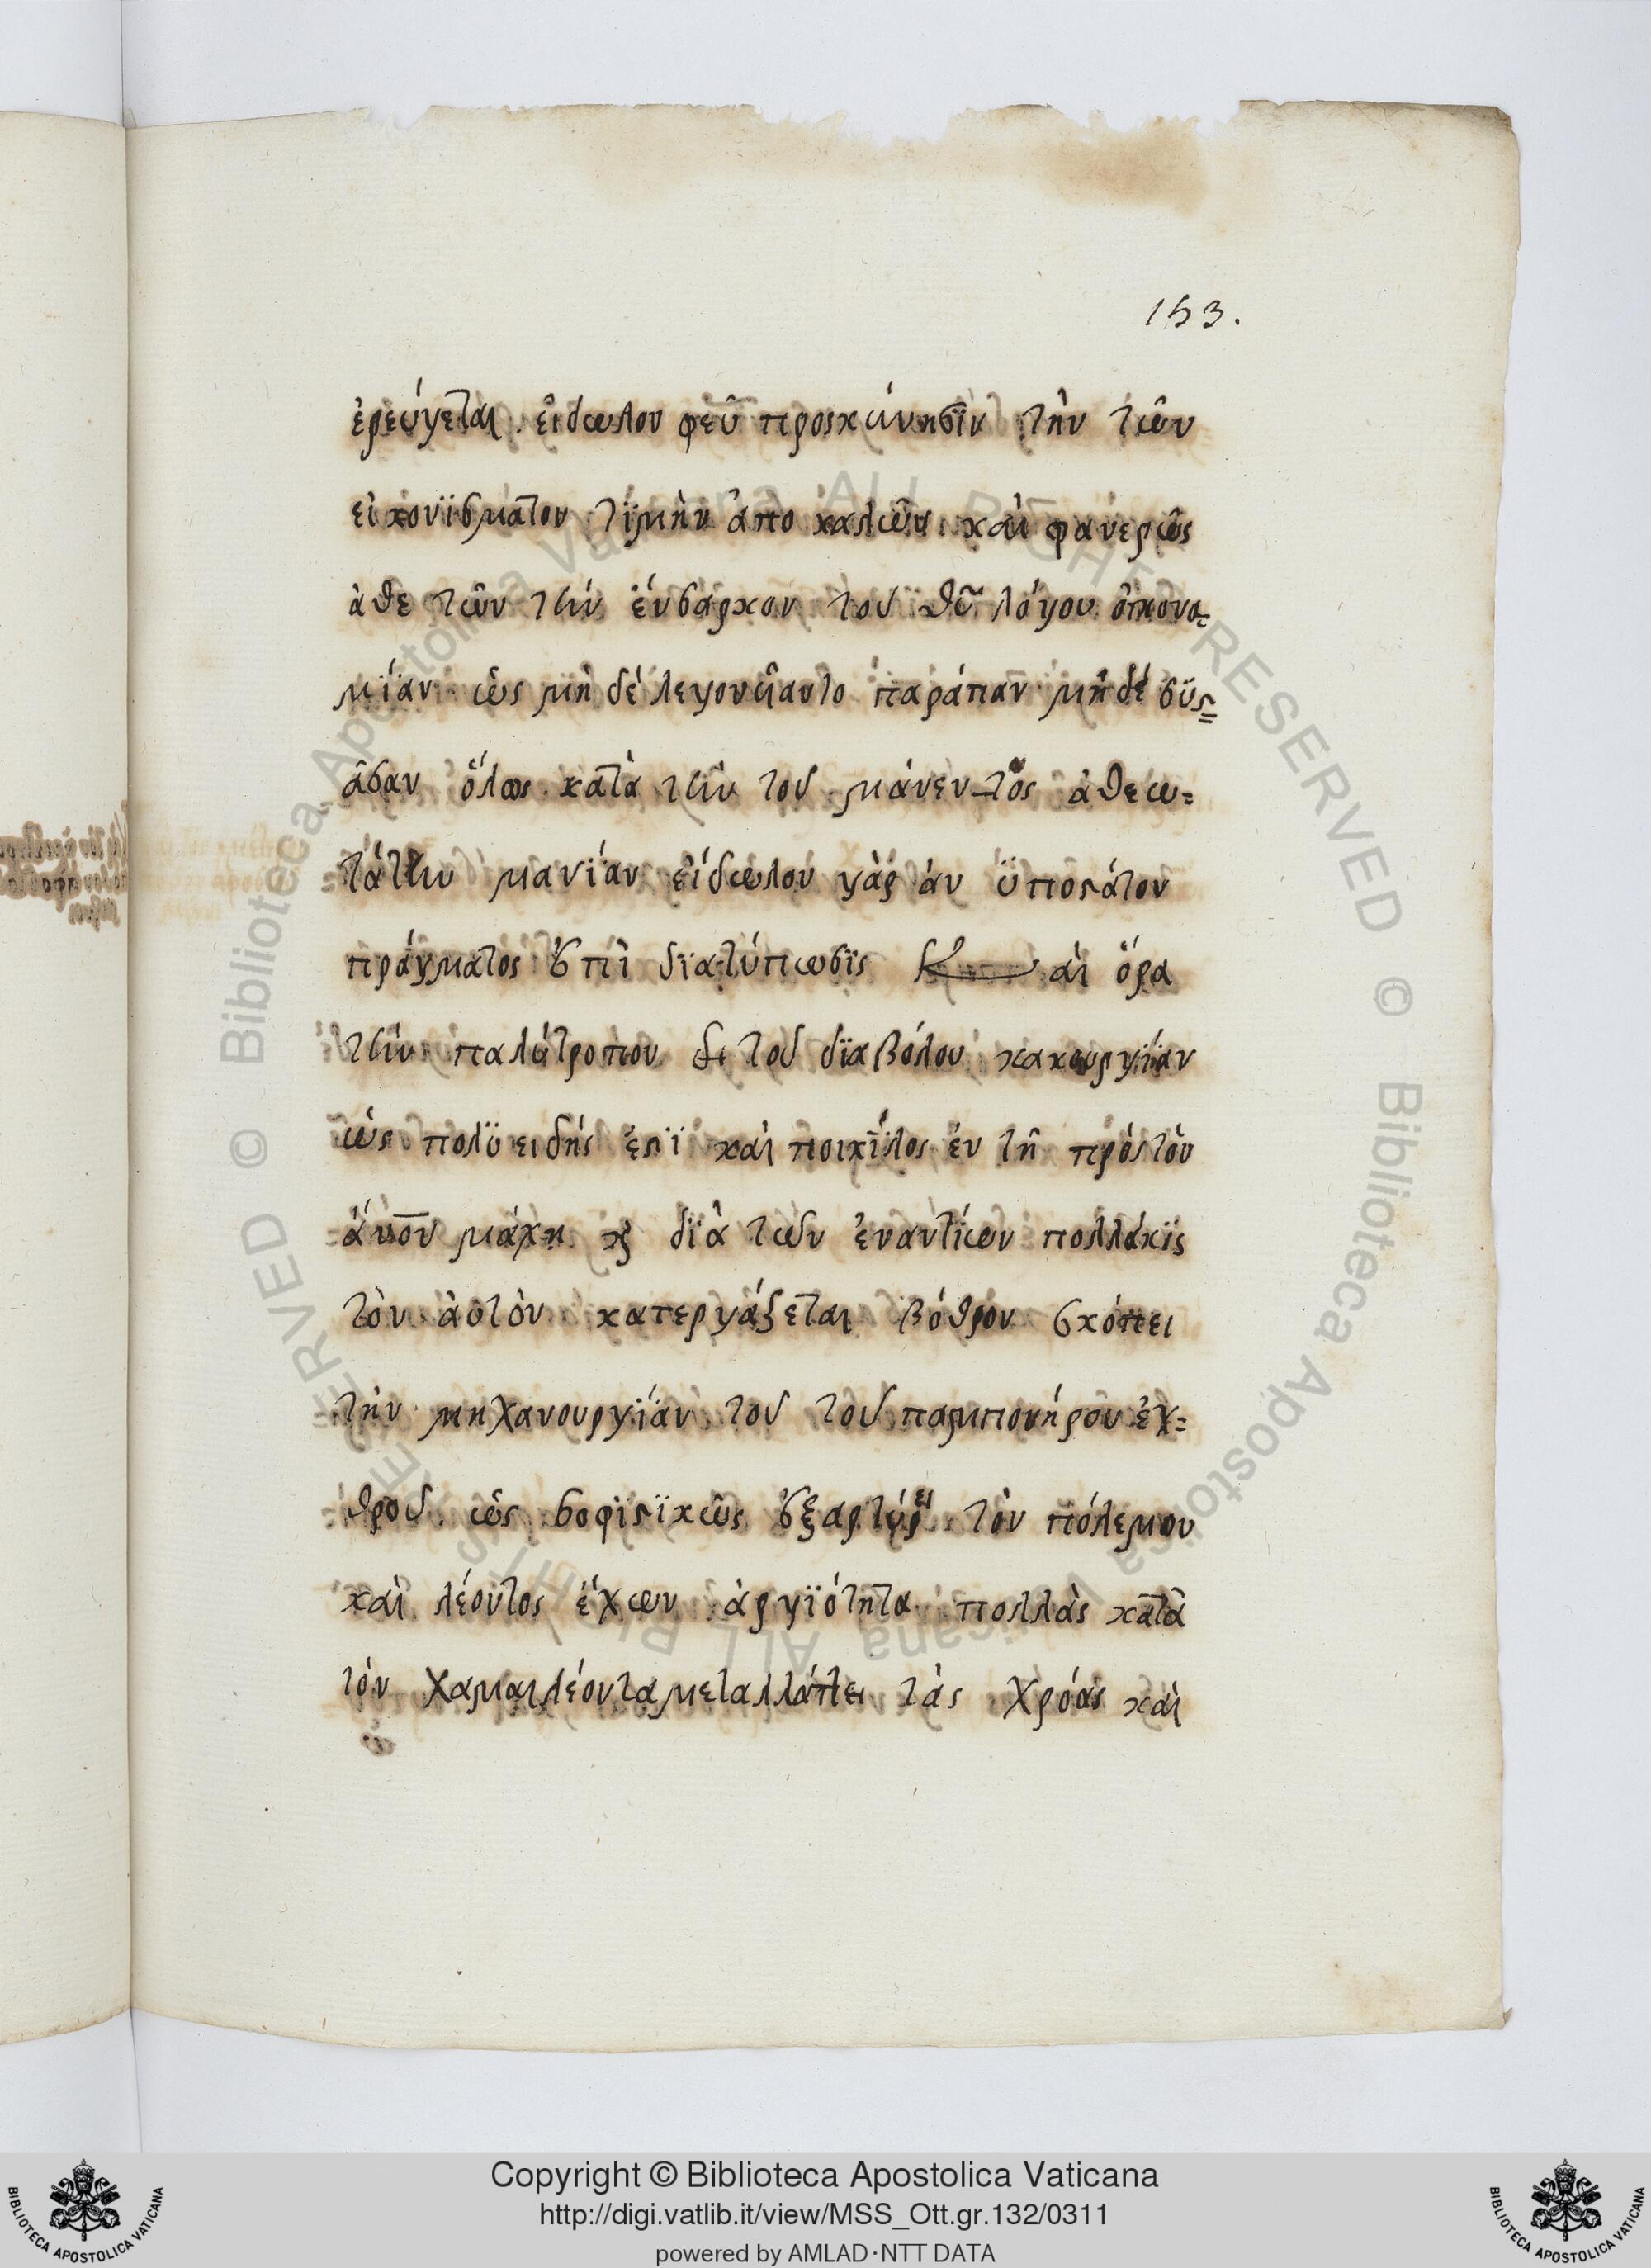 153.
ἐρεύγεται. εἰδωλου φεῦ προσκύνησϊν τὴν τῶν
εἰκονϊσματον τϊμὴν ἀπο καλῶν. καὶ φανερῶς
ἀθε τῶν τὴν ἔνσαρκον τοῦ θῦ λόγου οἰκονο=
μϊαν ὡς μὴ δὲ λεγονῦαντο παράπαν μὴ δέ σϋς=
ᾶσαν ὅλως κατὰ τὴν τοῦ μάνεν-τος ἀθεω=
τάτην μανϊαν εἴδωλον γὰρ ἀν ϋποστάτον
πράγματος ἐπὶ δϊατύπωσϊς Καὶ ὅρα
τὴν παλύτροπον τοῦ δϊαβόλου κακουργϊαν
ὡς πολϋ ειδής ἐστϊ καὶ ποικῖλος ἐν τῆ πρός τὸν
ἄνον μάχη κ δϊὰ τῶν ἐναντίων πολλάκϊς
τὸν ἀυτὸν κατεργάζεται βόθρον σκόπει
τὴν μηχανουργϊαν τοῦ τοῦ παμπονήρου ἐχ=
θροῦ ὡς σοφιστϊκῶς ἐξαρτύρει τὸν πόλεμον
καὶ λέοντος ἔχων ἀργϊότητα πολλὰς κατὰ
τόν χαμαιλέοντα μεταλλάττει τὰς χρόας καὶ
Copyright © Biblioteca Apostolica Vaticana
http://digi.vatlib.it/view/MSS_Ott.gr.132/0311
powered by AMLAD·NTT DATA
BIBLIOTECA APOSTOLICA VATICANA
BIBLIOTECA APOSTOLICA VATICANA
© Biblioteca Apostolica Vaticana ALL RIGHTS RESERVED
© Biblioteca Apostolica Vaticana ALL RIGHTS RESERVED